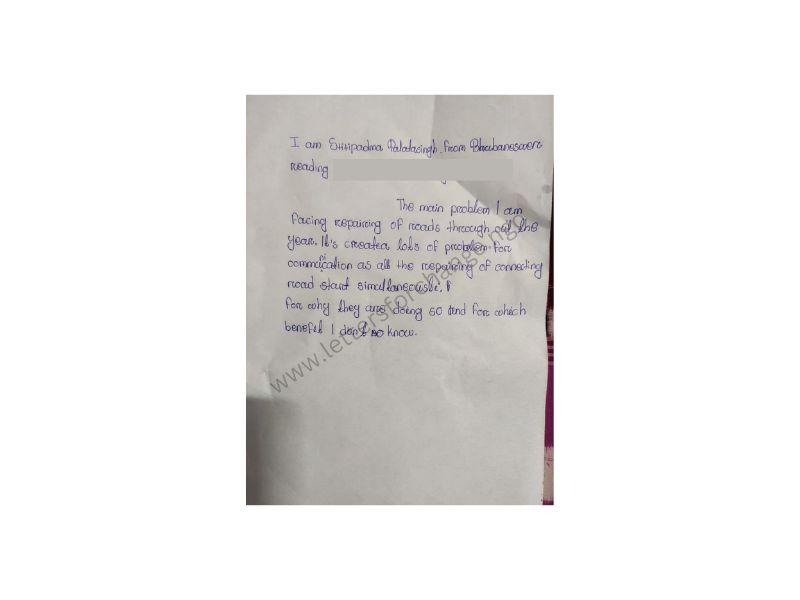 I am Shripadma Palatasingh, from Bhubaneswer
reading
The main problem I am
facing repairing of roads through out the
year. It's created lots of problem for
communication as all the repairing of connecting
road start simultaneously.
for why they are doing so and for which
benefit I don't so know.
www.lettersforchange.ngo